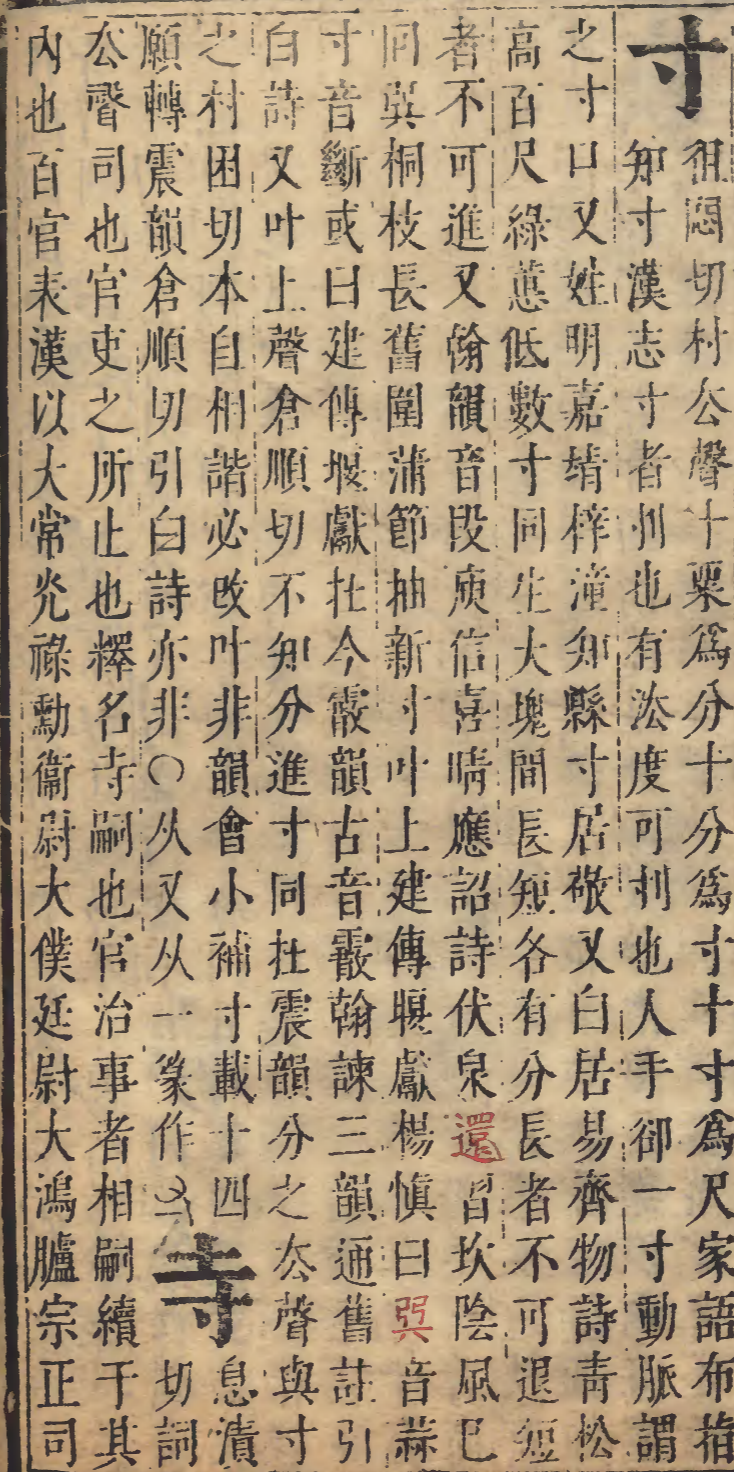 寸徂悶切村厺聲十粟爲分十分爲寸十寸爲尺家語布指
知寸漢志寸者刌也有法度可刌也人手卻一寸動脈謂
之寸口又姓明嘉靖梓潼知縣寸居敬又白居易齊物詩靑松
高百尺綠蕙低數寸同生大塊間長短各有分長者不可退短
者不可進又翰韻音段庾信喜晴應詔詩伏泉還習坎陰風巳
囘巽桐枝長舊圍蒲節抽新寸叶上建傳堰獻楊愼曰巽音蒜
寸音斷或曰建傳堰獻在今霰韻古音霰翰諫三韻通舊註引
白詩又叶上聲倉順切不知分進寸同在震韻分之厺聲與寸
之村困切本自相諧必改叶非韻會小補寸載十四
願轉震韻倉順切引白詩亦非○从又从一篆作
寺息漬
切詞
厺聲司也官吏之所止也釋名寺嗣也官治事者相嗣續于其
內也百官表漢以大常光祿勳衞尉大僕廷尉大鴻臚宗正司